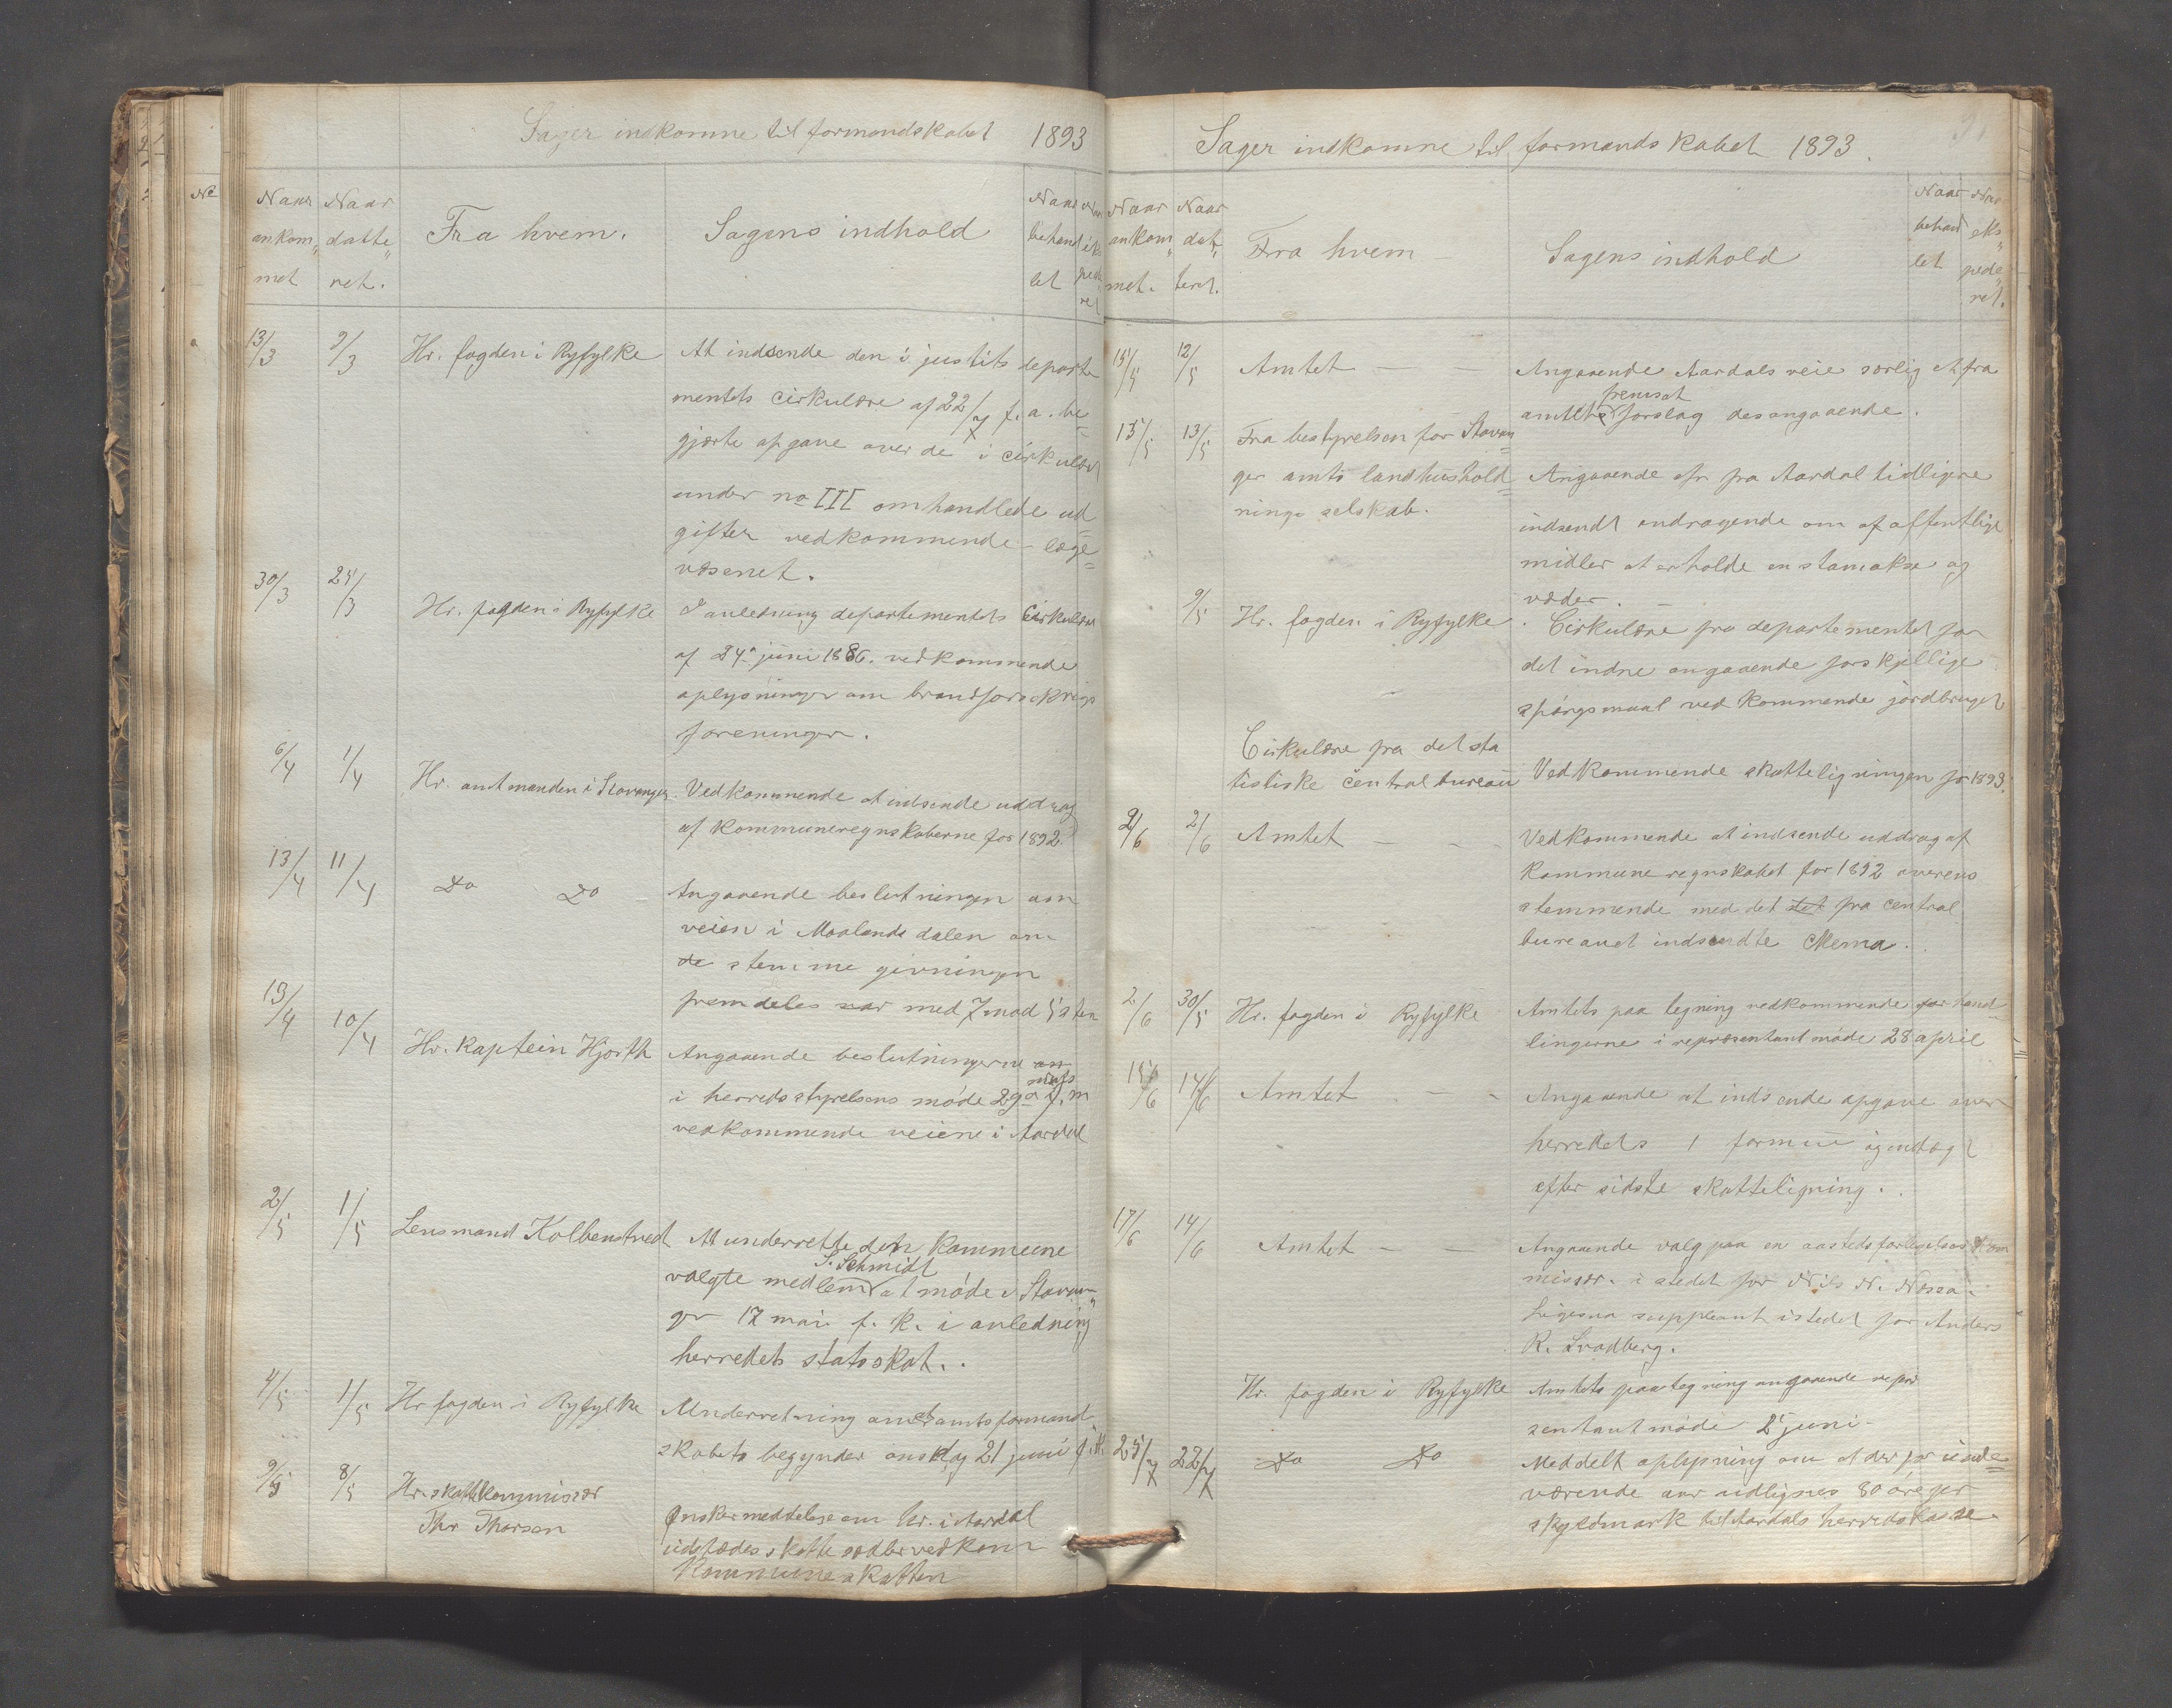 Sager indkomne til formandskabet 1893
Naar ankom„ met
Naar datte„ ret.
Fra hvem.
Sagens indhold
Naar behand let
13/3 9/3 Hr. fogden i Ryfylke At indsende den i justits departe
mentets cirkulære af 22/7 f. a. be=
gjærte opgave over de i cirkulæret
under no III omhandlede ud=
gifter vedkommende læge=
væsenet.
30/3 24/3 Hr. fogden i Ryfylke I anledning departementets Cirkulære
af 24. juni 1886. vedkommende
oplysninger om brandforsekrings
foreninger.
6/4 1/4 Hr. amtmanden i Stavanger Vedkommende at indsende uddrag
af kommuneregnskaberne for 1892.
13/4 11/4 Do Do Angaaende beslutningen om
veien i Maalandsdalen om
de stemme givningen
fremdeles var med 7 mod 5 sten
13/4 10/4 Hr. Kaptein Hjorth Angaaende beslutningerne
i herredsstyrelsens møde 29. f. m
vedkommende veiene i Aardal
2/5 1/5 Lensmand Kolbenstvedt At underrette den Kommune
valgte medlem S. Schmidt at møde i Stavan„
ger 17 mai f. k. i anledning
herredets statsskat.
4/5 1/5 Hr fogden i Ryfylke Underretning om at amtsformand
skabets begynder onsdag 21 juni f. k.
9/5 8/5 Hr. skattekommissær Ønsker meddelese om hr. i Aardal
Thr Thorsen udstædes skatte sedler vedkom
Kommuneskatten
Sager indkomne til formandskabet 1893.
Naar ankom„ met.
Naar dat„ teret.
Fra hvem
Sagens indhold
Naar behand let
Naar eks„ pede„ ret.
15/5 12/5 Amtet — — Angaaende Aardals veie særlig et fra
amtet fremsat forslag desangaaende.
15/5 13/5 Fra bestyrelsen for Stavan=
ger amts landhushold= Angaaende et fra Aardal tidligere
nings selskab. indsendt andragende om af offentlige
midler at erholde en stamokse og
væder.
9/5 Hr. fogden i Ryfylke Cirkulære fra departementet for
det indre angaaende forskjellige
spørgsmaal vedkommende jordbruget
Cirkulære fra det sta
tistiske centralbureau Vedkommende skatteligningen for 1893.
2/6 2/6 Amtet — — Vedkommende at indsende uddrag af
Kommuneregnskabet for 1892 overens
stemmende med det fra central
bureauet indsendte Skema.
2/6 30/5 Hr. fogden i Ryfylke Amtets paategning vedkommende forhand=
lingerne i repræsentantmøde 28 april
15/6 14/6 Amtet - - Angaaende at indsende opgave over
herredets formue
efter sidste skatteligning.
17/6 14/6 Amtet — — Angaaende valg paa en aastedsforligelses kom
missær. i stedet for Nils N. Nessa.
Ligesaa suppleant istedet for Anders
R. Svadberg.
Hr. fogden i Ryfylke Amtets paategning angaaende repræ
sentantmøde 2 juni.
25/7 22/7 Do Do Meddelt oplysning om at der for inde=
værende aar udlignes 80 øre per
skyldmark til Aardals herredskasse.